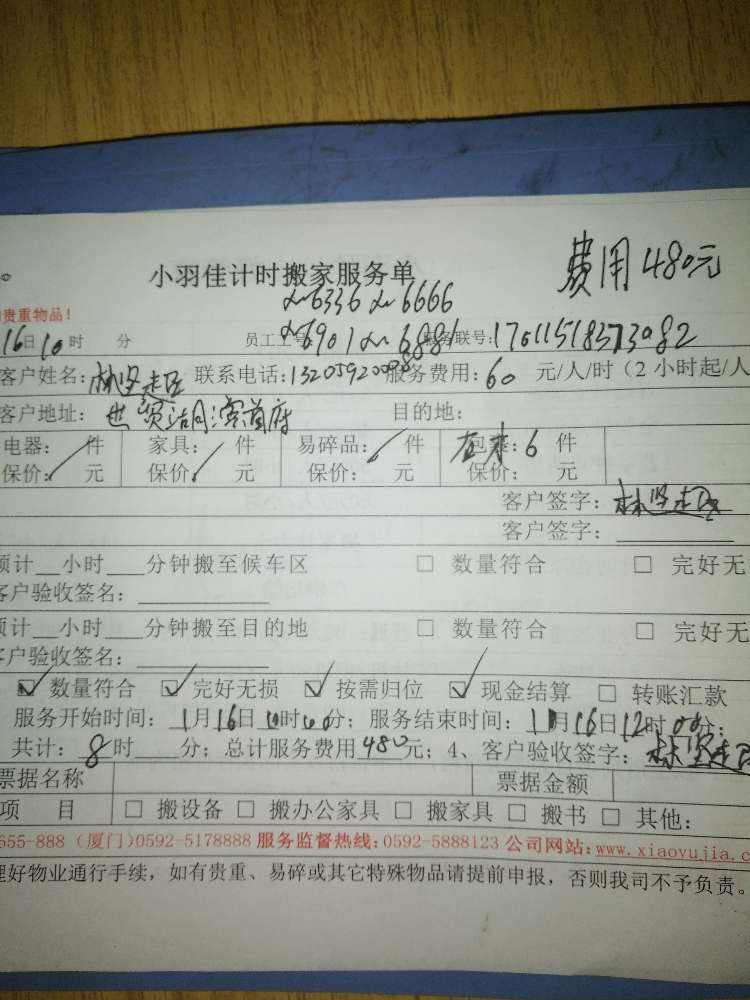 费用480元
小羽佳计时搬家服务单
贵重物品!
6336 6666
16日10时 分 员工工号: 6901 6881 服务联号:17011518373082
客户姓名:林 联系电话: 服务费用:60 元/人/时(2小时起/人
客户地址: 目的地:
电器: 件 家具: 件 易碎品: 件 6 件
保价: 元 保价: 元 保价: 元 保价: 元
客户签字:林
客户签字:
预计__小时___分钟搬至候车区 □ 数量符合 □ 完好无
客户验收签名:
预计__小时___分钟搬至目的地 □ 数量符合 □ 完好无
客户验收签名:
☑ 数量符合 ☑ 完好无损 ☑ 按需归位 ☑ 现金结算 □ 转账汇款
服务开始时间: 1月16日10时00分; 服务结束时间: 1月16日12时00分;
共计: 8时___分; 总计服务费用480元; 4、客户验收签字: 林
票据名称 票据金额
项 目 □ 搬设备 □ 搬办公家具 □ 搬家具 □ 搬书 □ 其他:
655-888 (厦门)0592-5178888 服务监督热线:0592-5888123 公司网站:www.xiaoyujia.c
理好物业通行手续,如有贵重、易碎或其它特殊物品请提前申报,否则我司不予负责。